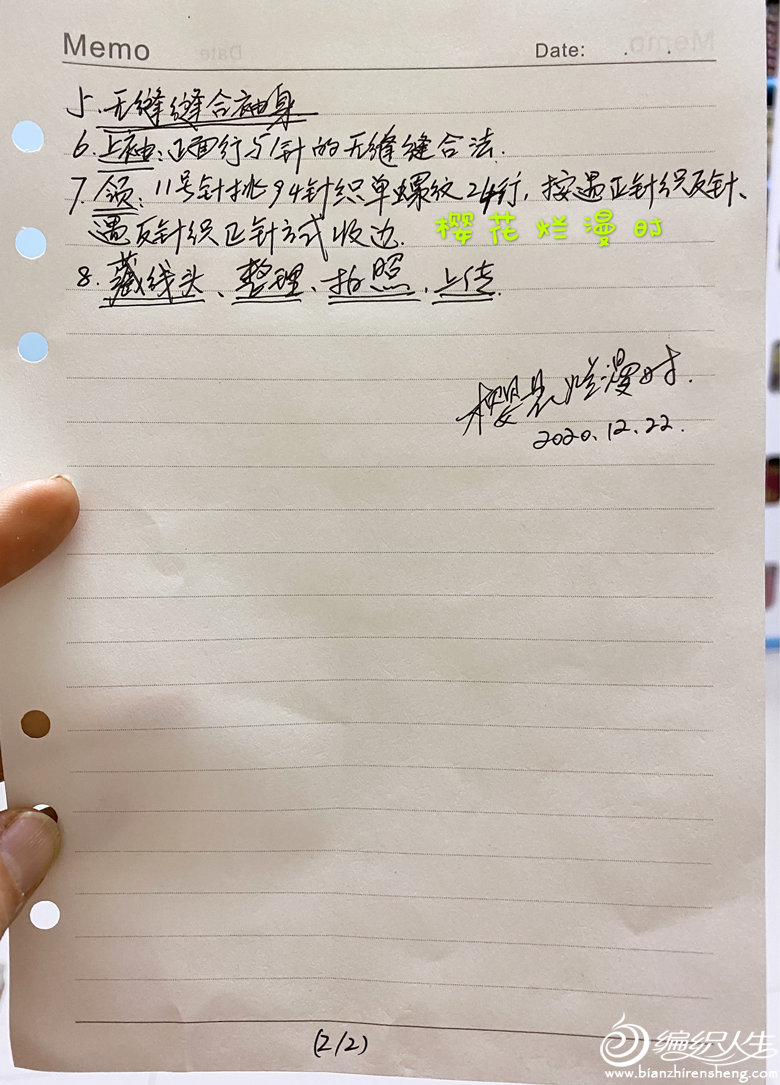 Memo Date: . .
5.无缝缝合袖身
6.上袖:正面行与1针的无缝缝合法.
7.领:11号针挑94针织单螺纹24行,按遇正针织反针、
遇反针织正针方式收边. 樱花烂漫时
8.藏线头、整理、拍照、上传.
樱花烂漫时.
2020.12.22.
(2/2)
编织人生
www.bianzhirensheng.com